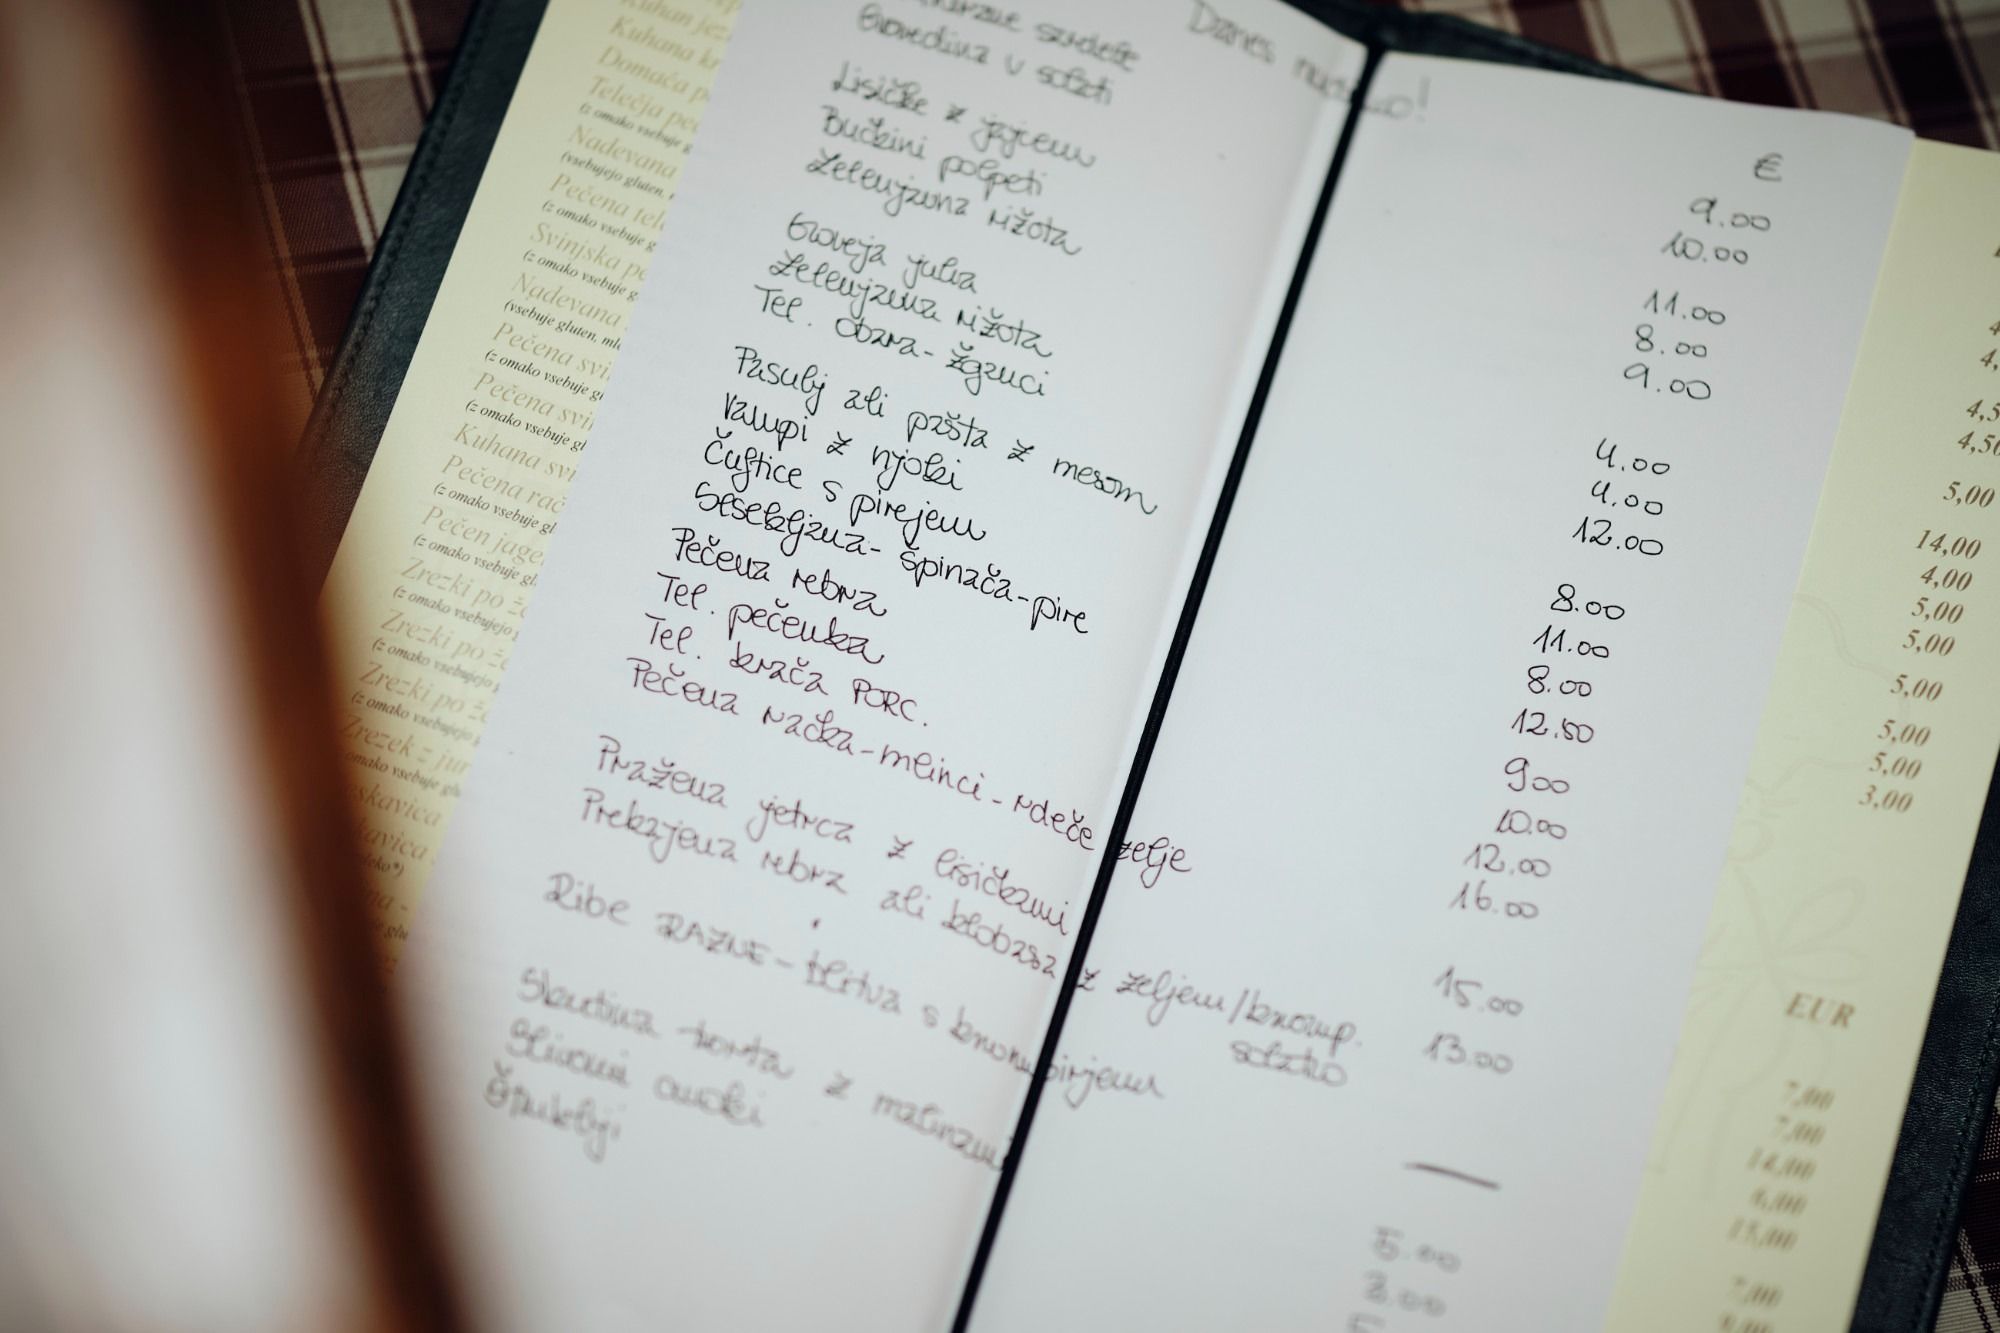 Danes nudimo!
Govedina v solati
Lisičke z jajcem
Bučkini polpeti
Zelenjavna rižota
Goveja juha
Zelenjavna rižota
Tel. obara - žganci
Pasulj ali pašta z mesom
Vampi z njoki
Čuftice s pirejem
Sesekljana - špinača - pire
Pečena rebra
Tel. pečenka
Tel. krača PORC.
Pečena račka - mlinci - rdeče zelje
Pražena jetrca z lisičkami
Prekajena rebra ali klobasa z zeljem/kromp.
solato
Ribe RAZNE - blitva s krompirjem
Skutina torta z malinami
Slivovi cmoki
Štruklji
€
9.00
10.00
11.00
8.00
9.00
4.00
4.00
12.00
8.00
11.00
8.00
12.50
9.00
10.00
12.00
16.00
15.00
13.00
5.00
3.00
Kuhan
Kuhana
Domača
Telečja
(z omako vsebuje
Nadevana
(vsebujejo gluten,
Pečena
(z omako vsebuje
Svinjska
(z omako vsebuje
Nadevana
(vsebuje gluten,
Pečena
(z omako vsebuje
Pečena
(z omako vsebuje
Kuhana
Pečena
(z omako vsebuje
Pečen
(z omako vsebuje
Zrezki po
(z omako vsebujejo
Zrezki po
(z omako vsebujejo
Zrezki po
(z omako vsebujejo
Zrezek z
(z omako vsebuje
5,00
14,00
4,00
5,00
5,00
5,00
5,00
5,00
3,00
EUR
7,00
7,00
14,00
6,00
15,00
7,00